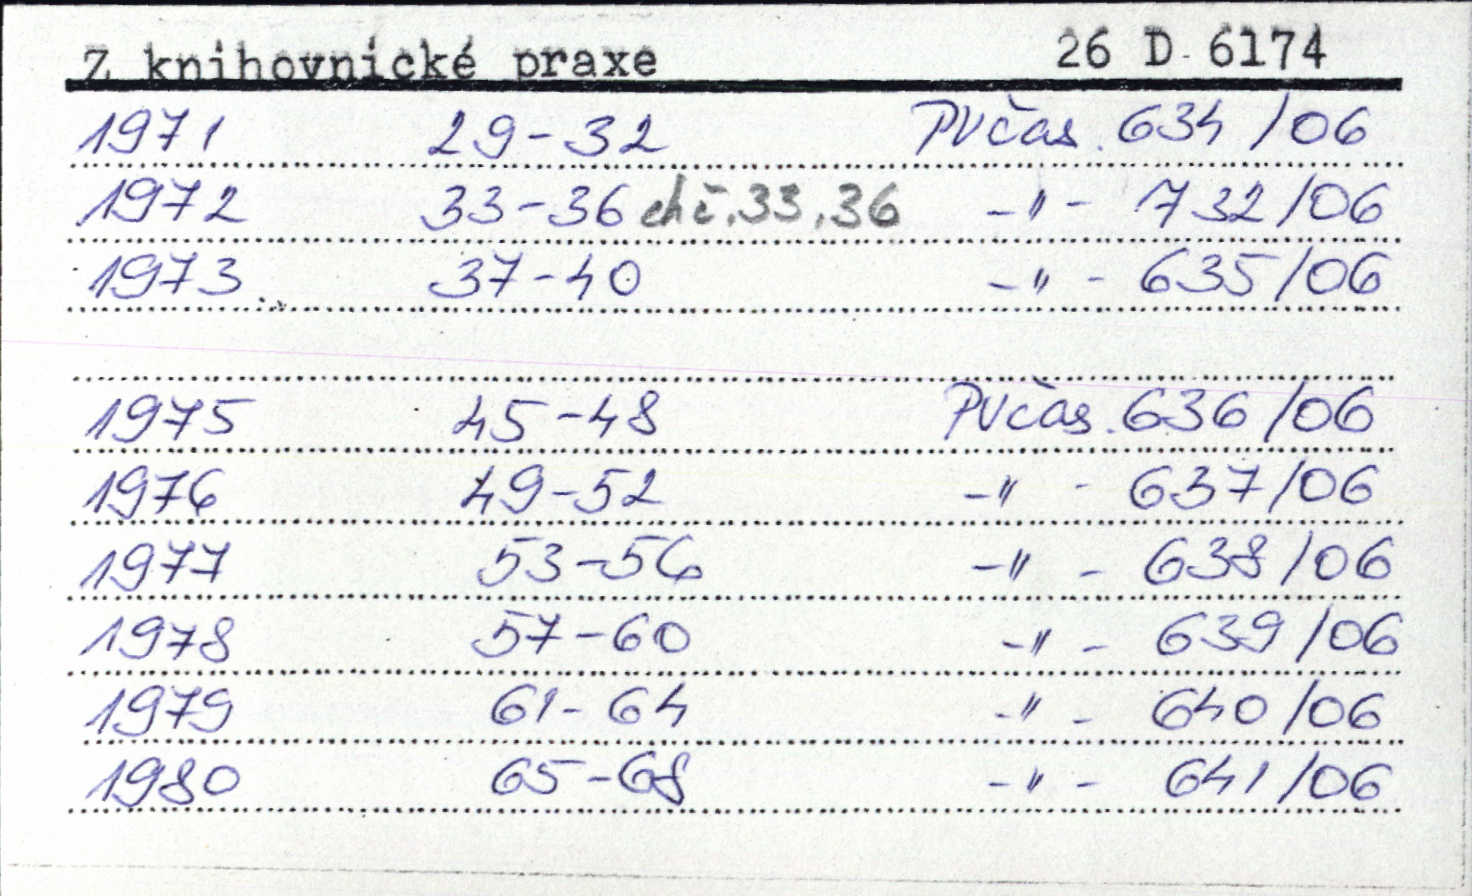 Z knihovnické praxe 26 D 6174
1971 29-32 PVčas. 634/06
1972 33-36 ch č. 33, 36 -"- 732/06
1973 37-40 -"- 635/06
1975 45-48 PVčas. 636/06
1976 49-52 -"- 637/06
1977 53-56 -"- 638/06
1978 57-60 -"- 639/06
1979 61-64 -"- 640/06
1980 65-68 -"- 641/06